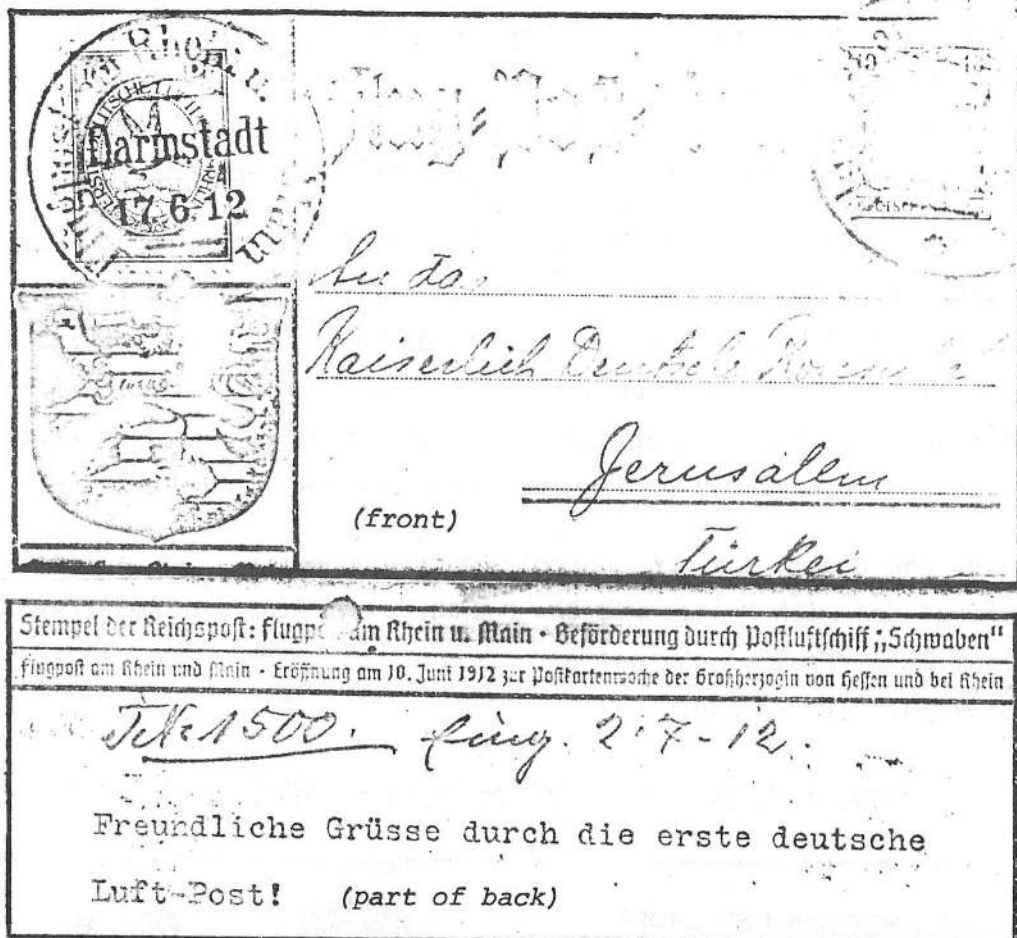 Darmstadt
17.6.12
Flug-Post
An das
Kaiserlich Deutsche Konsulat
Jerusalem
(front)
Türkei
Stempel der Reichspost: Flugp am Rhein u. Main · Beförderung durch Postluftschiff „Schwaben"
Flugpost am Rhein und Main · Eröffnung am 10. Juni 1912 zur Postkartenwoche der Großherzogin von Hessen und bei Rhein
1500. Eing. 2.7-12.
Freundliche Grüsse durch die erste deutsche
Luft-Post! (part of back)